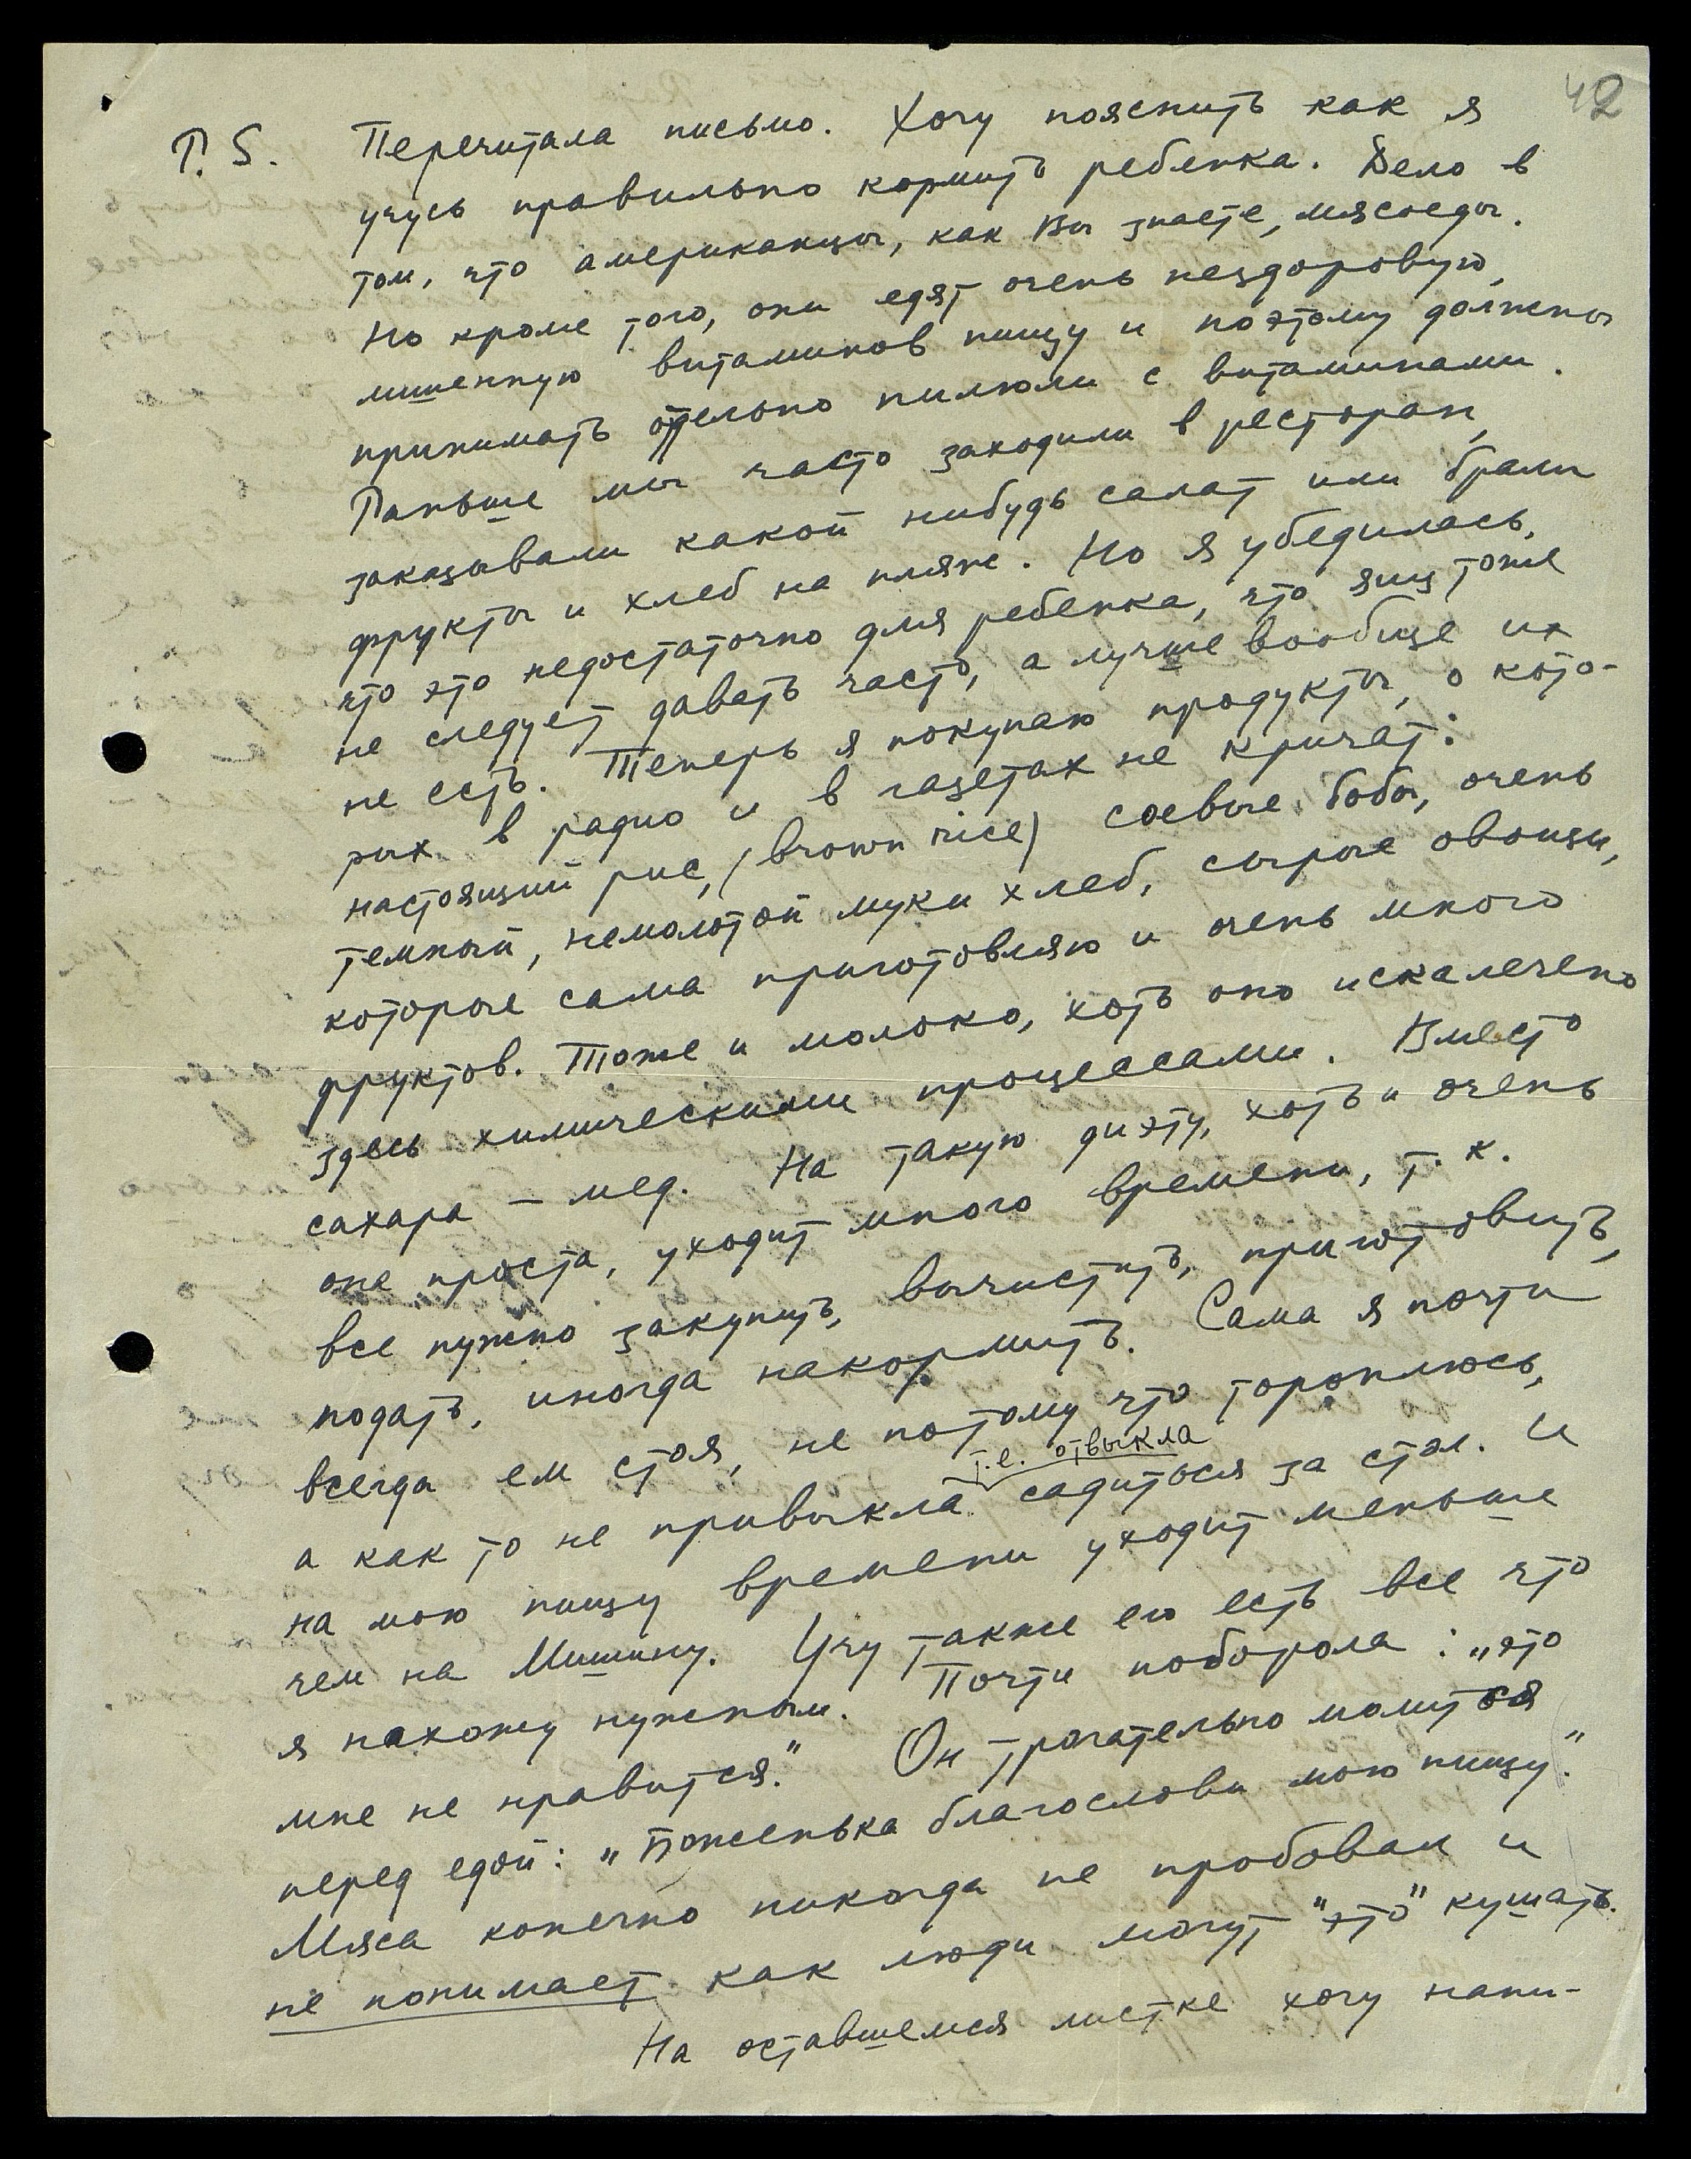 42
P. S. Перечитала письмо. Хочу пояснить как я
учусь правильно кормить ребенка. Дело в
том, что американцы, как Вы знаете, мясоеды.
Но кроме того, они едят очень нездоровую,
лишенную витаминов пищу и поэтому должны
принимать отдельно пилюли с витаминами.
Раньше мы часто заходили в ресторан,
заказывали какой нибудь салат или брали
фрукты и хлеб на пляже. Но я убедилась,
что это недостаточно для ребенка, что яиц тоже
не следует давать часто, а лучше вообще их
не есть. Теперь я покупаю продукты, о кото-
рых в радио и в газетах не кричат:
настоящий рис, (brown rice) соевые бобы, очень
темный, немолотой муки хлеб, сырые овощи,
которые сама приготовляю и очень много
фруктов. Тоже и молоко, хоть оно искалечено
здесь химическими процессами. Вместо
сахара – мед. На такую диэту, хоть и очень
она проста, уходит много времени, т. к.
все нужно закупить, вычистить, приготовить,
подать, иногда накормить. Сама я почти
всегда ем стоя, не потому что тороплюсь,
а как то не привыкла т.е. отвыкла садиться за стол. И
на мою пищу времени уходит меньше
чем на Мишину. Учу также его есть все что
я нахожу нужным. Почти поборола: „это
мне не нравится." Он трогательно молится
перед едой: „Боженька благослови мою пищу."
Мяса конечно никогда не пробовал и
не понимает как люди могут "это" кушать.
На оставшемся листке хочу напи-